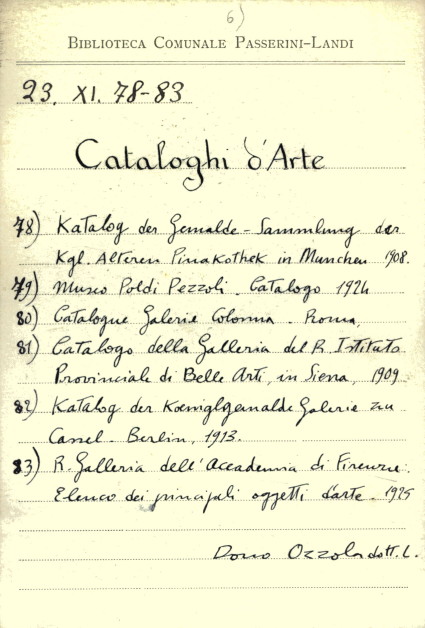 6)
BIBLIOTECA COMUNALE PASSERINI-LANDI
23. XI. 78-83
Cataloghi d'Arte
78) Katalog der Gemalde-Sammlung der
Kgl. Alteren Pinakothek in Munchen 1908.
79) Museo Poldi Pezzoli. Catalogo 1924
80) Catalogue Galerie Colonna. Roma,
81) Catalogo della Galleria del R. Istituto
Provinciale di Belle Arti, in Siena, 1909
82) Katalog der Koeniglgemalde Galerie zu
Cassel. Berlin, 1913.
83) R. Galleria dell'Accademia di Firenze.
Elenco dei principali oggetti d'arte. 1925
Dono Ozzola dott. L.